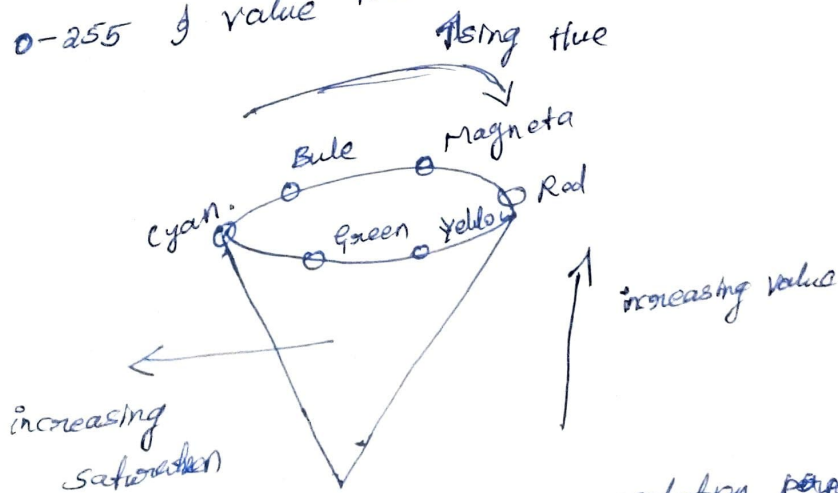 0-255 & value
↑sing Hue
Magneta
Bule
Red
Cyan.
Green
Yello
increasing value
increasing
saturation